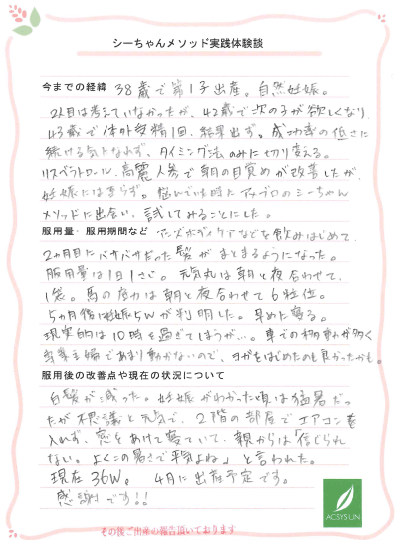 シーちゃんメソッド実践体験談
今までの経緯 38歳で第1子出産。自然妊娠。
2人目は考えていなかったが、42歳で次の子が欲しくなり、
43歳で体外受精1回、結果出ず。成功率の低さに
続ける気になれず、タイミング法のみに切り変える。
リスベラトロール、高麗人参で朝の目覚めが改善したが、
妊娠には至らず。悩んでいた時にアメブロのシーちゃん
メソッドに出会い、試してみることにした。
服用量・服用期間など アンズボディケアなどを飲みはじめて
2ヵ月目にパサパサだった髪がまとまるようになった。
服用量は1日1さじ。元気丸は朝と夜合わせて、
1袋。馬の底力は朝と夜合わせて6粒位。
5ヵ月後に妊娠5wが判明した。早めに寝る。
現実的は10時を過ぎてしまうが…。車での移動が多く
専業主婦であまり動かないので、ヨガをはじめたのも良かったかも。
服用後の改善点や現在の状況について
白髪が減った。妊娠がわかった頃は猛暑だっ
たが不思議と元気で、2階の部屋でエアコンを
入れず、窓をあけて寝ていて、親からは「信じられ
ない。よくこの暑さで平気よね」と言われた。
現在36w。4月に出産予定です。
感謝です!!
ACSYSUN
その後ご出産の報告頂いております